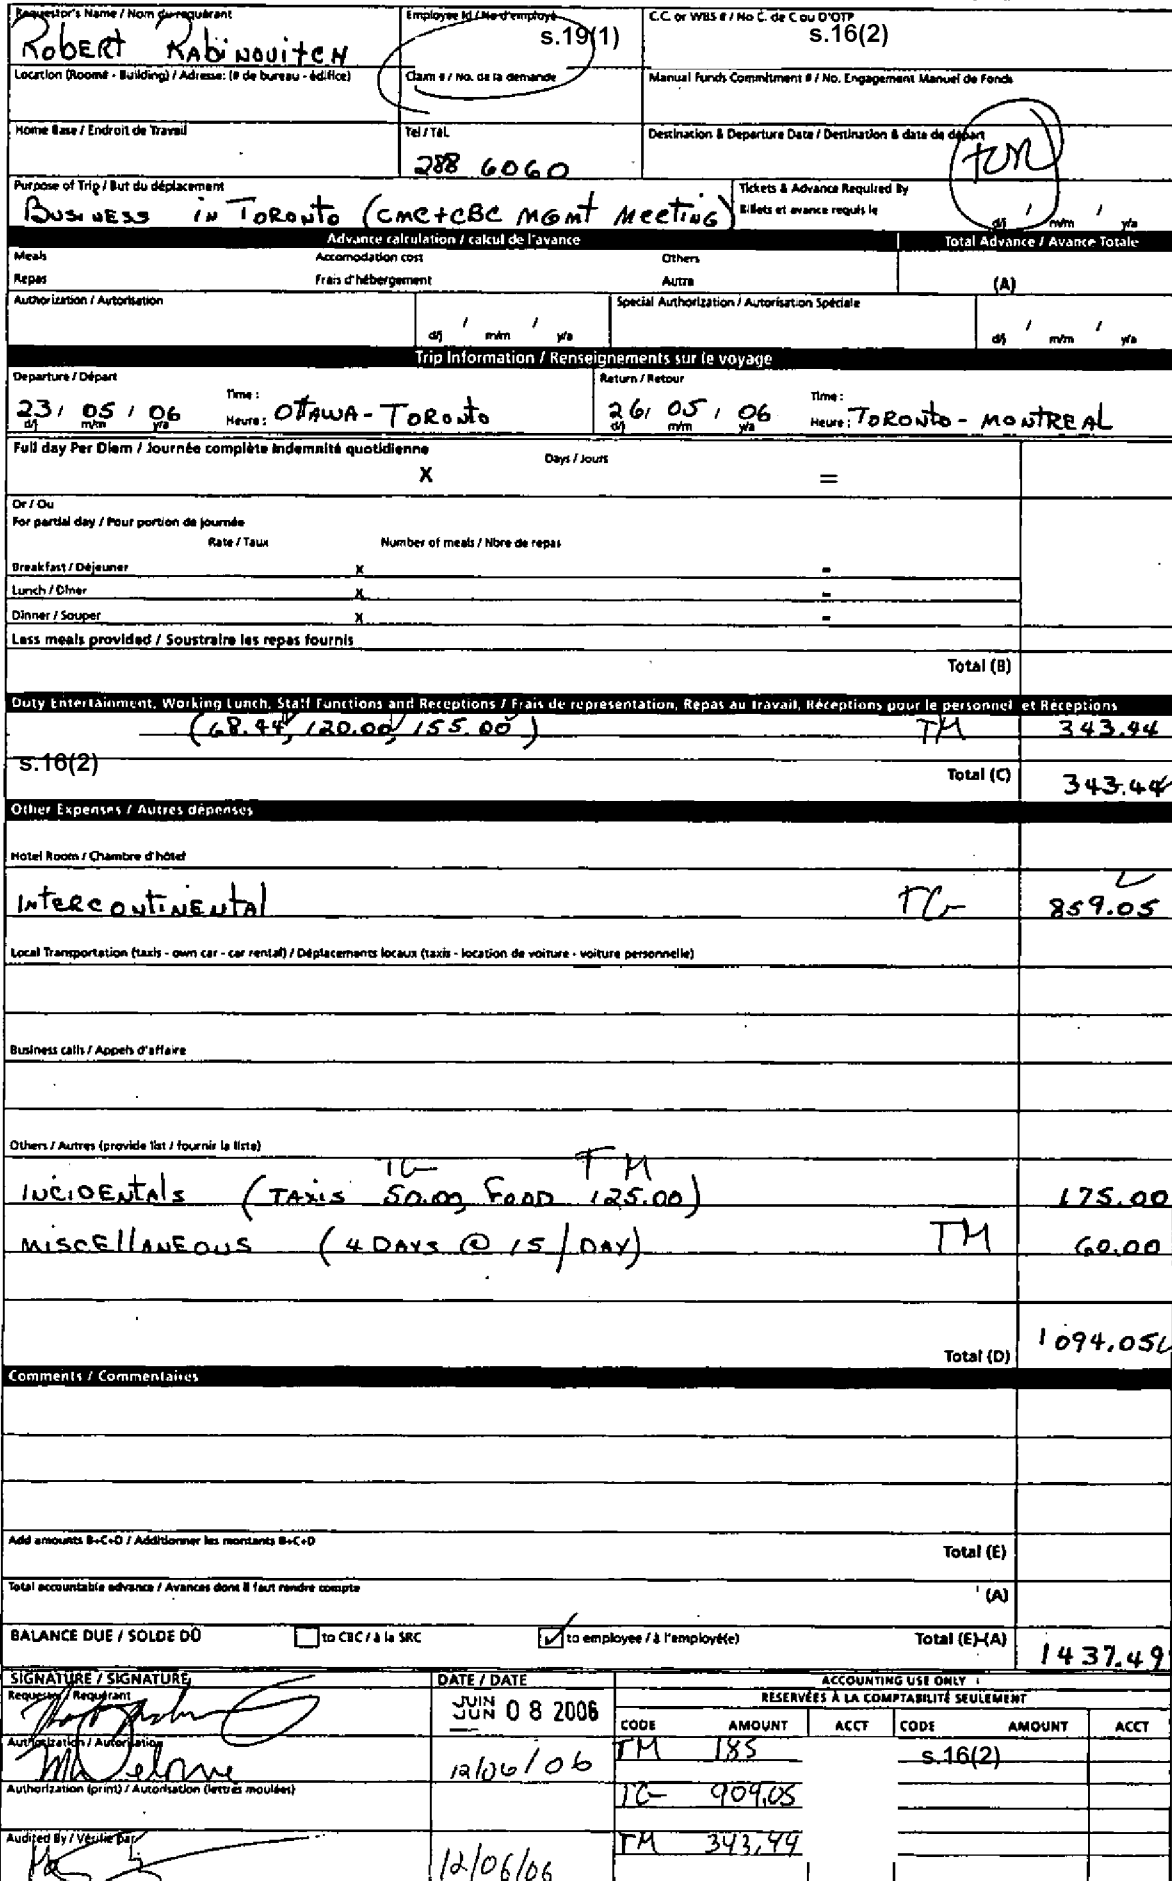 Requestor's Name / Nom du requérant
Robert Rabinovitch
Employee Id / No d'employé
s.19(1)
C.C. or WBS # / No C. de C ou D'OTP
s.16(2)
Location (Room# - Building) / Adresse: (# de bureau - édifice)
Claim # / No. de la demande
Manual Funds Commitment # / No. Engagement Manuel de Fonds
Home Base / Endroit de Travail
Tel / Tél.
288 6060
Destination & Departure Date / Destination & date de départ
Purpose of Trip / But du déplacement
Business in Toronto (CMC+CBC MGMT Meeting)
Tickets & Advance Required By
Billets et avance requis le
d/j / m/m / y/a
Advance calculation / calcul de l'avance
Total Advance / Avance Totale
Meals Accomodation cost Others
Repas Frais d'hébergement Autre (A)
Authorization / Autorisation
d/j / m/m / y/a
Special Authorization / Autorisation Spéciale
d/j / m/m / y/a
Trip Information / Renseignements sur le voyage
Departure / Départ
23 / 05 / 06
d/j m/m y/a
Time :
Heure : Ottawa - Toronto
Return / Retour
26 / 05 / 06
d/j m/m y/a
Time :
Heure : Toronto - Montreal
Full day Per Diem / Journée complète indemnité quotidienne
X Days / Jours =
Or / Ou
For partial day / Pour portion de journée
Rate / Taux Number of meals / Nbre de repas
Breakfast / Déjeuner x =
Lunch / Dîner x =
Dinner / Souper x =
Less meals provided / Soustraire les repas fournis
Total (B)
Duty Entertainment, Working Lunch, Staff Functions and Receptions / Frais de représentation, Repas au travail, Réceptions pour le personnel et Réceptions
(68.44, 120.00, 155.00) TM 343.44
s.16(2)
Total (C) 343.44
Other Expenses / Autres dépenses
Hotel Room / Chambre d'hôtel
Intercontinental TG 859.05
Local Transportation (taxis - own car - car rental) / Déplacements locaux (taxis - location de voiture - voiture personnelle)
Business calls / Appels d'affaire
Others / Autres (provide list / fournir la liste)
TG TM
Incidentals (Taxis 50.00, Food 125.00) 175.00
Miscellaneous (4 Days @ 15/Day) TM 60.00
Total (D) 1094.05
Comments / Commentaires
Add amounts B+C+D / Additionner les montants B+C+D
Total (E)
Total accountable advance / Avances dont il faut rendre compte
(A)
BALANCE DUE / SOLDE DÛ to CBC / à la SRC to employee / à l'employé(e) Total (E)-(A) 1437.49
SIGNATURE / SIGNATURE
DATE / DATE
ACCOUNTING USE ONLY
RESERVÉES À LA COMPTABILITÉ SEULEMENT
Requestor / Requérant
JUIN
JUN 08 2006
CODE AMOUNT ACCT CODE AMOUNT ACCT
Authorization / Autorisation
12/06/06
TM 185
s.16(2)
Authorization (print) / Autorisation (lettres moulées)
TG 909.05
Audited By / Vérifié par
12/06/06
TM 343.44